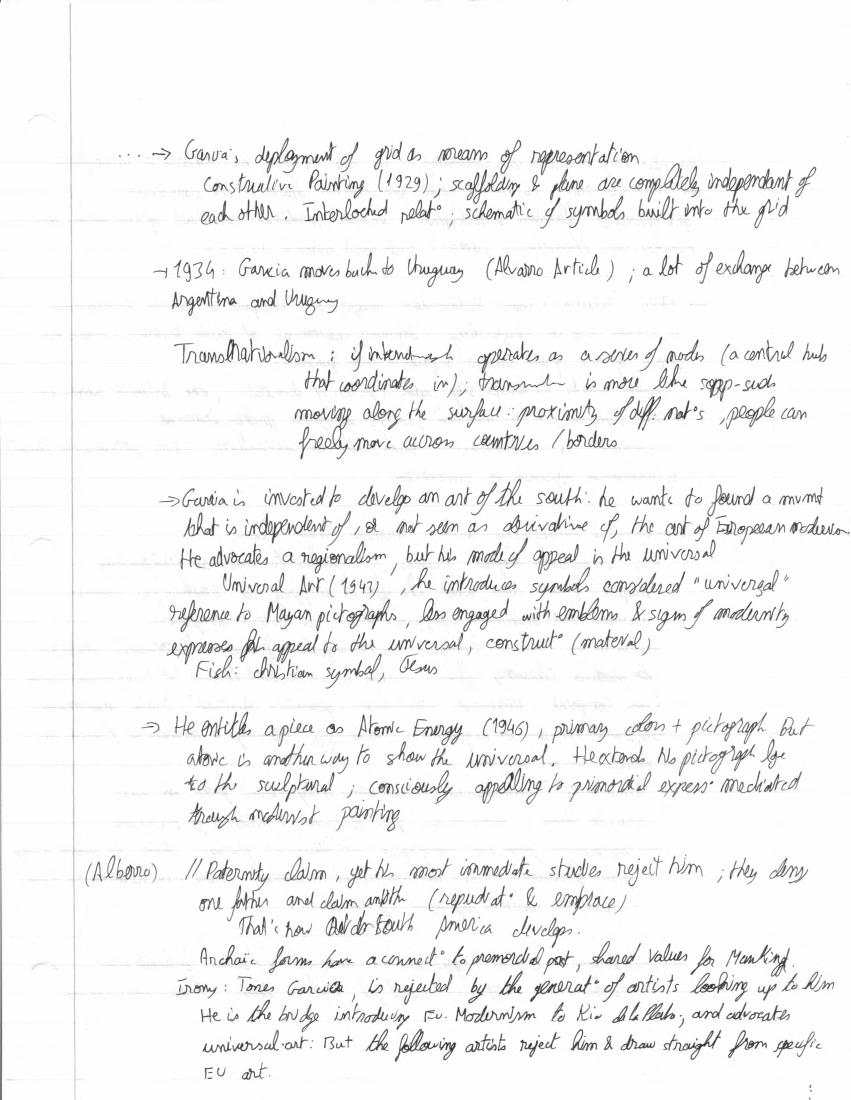 ... → Garcia's deployment of grid as means of representation
Constructive Painting (1929) ; scaffolding & plane are completely independant of
each other. Interlocked relat° ; schematic of symbols built into the grid
→ 1934 : Garcia moves back to Uruguay (Alvarro Article) ; a lot of exchange between
Argentina and Uruguay
Transnationalism : if operates as a series of nodes (a central hub
that coordinates in) ; is more like
moving along the surface : proximity of diff. nat°s , people can
freely move accross countries / borders
→ Garcia is invested to develop an art of the south : he wants to found a mvmt
that is independent of , or not seen as derivative of, the art of European modernism.
He advocates a regionalism, but his mode of appeal is the universal
Universal Art (1943) , he introduces symbols considered "universal"
reference to Mayan pictographs, less engaged with emblems & signs of modernity
expresses appeal to the universal, construct° (material)
Fish : christian symbol, Jesus
→ He entitles a piece as Atomic Energy (1946) , primary colors + pictograph But
atomic is another way to show the universal. He extends his pictograph lge
to the sculptural ; consciously appealing to primordial express° mediated
through modernist painting
(Alberro) // Paternity claim, yet his most immediate studies reject him ; they deny
one father and claim another (repudiat° & embrace)
That's how South America develops.
Archaic forms have a connect° to premordial past, shared values for Mankind.
Irony : Torres Garcia, is rejected by the generat° of artists looking up to him
He is the bridge introducing Eu. Modernism to Rio de la Plata ; and advocates
universal art : But the following artists reject him & draw straight from specific
EU art.